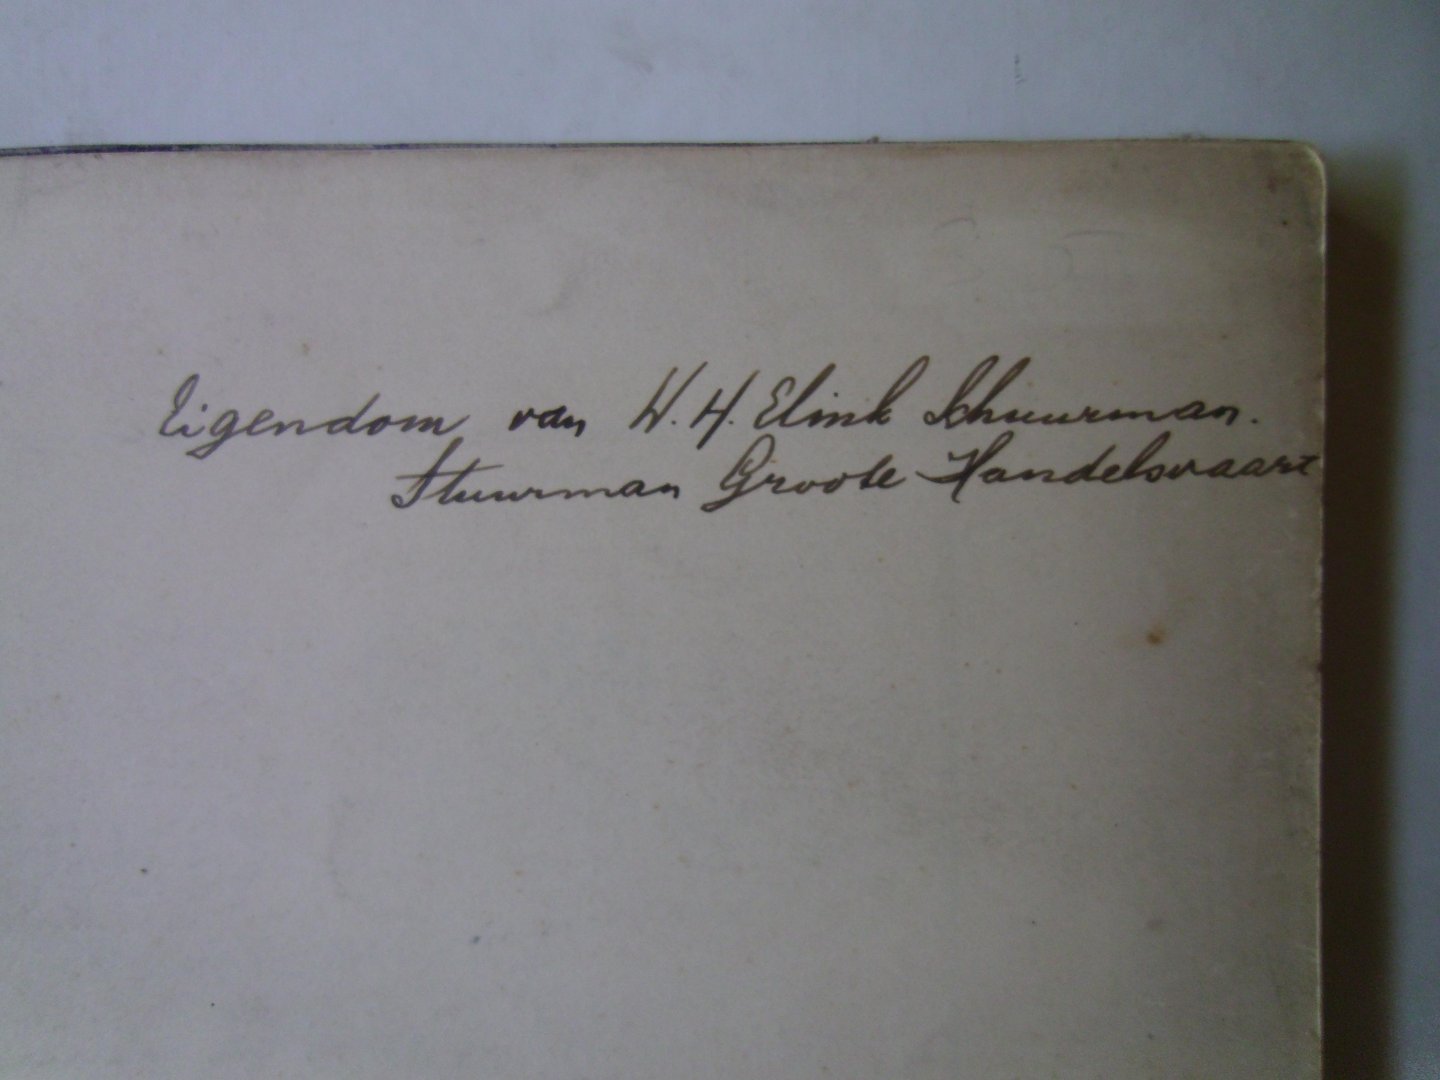 Eigendom van W. H. Elink Schuurman.
Stuurman Groote Handelsvaart